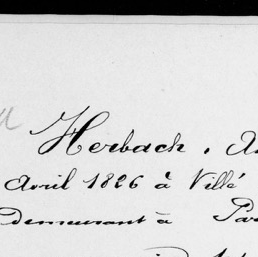 Herbach, A
Avril 1826 à Villé
Demeurant à Par